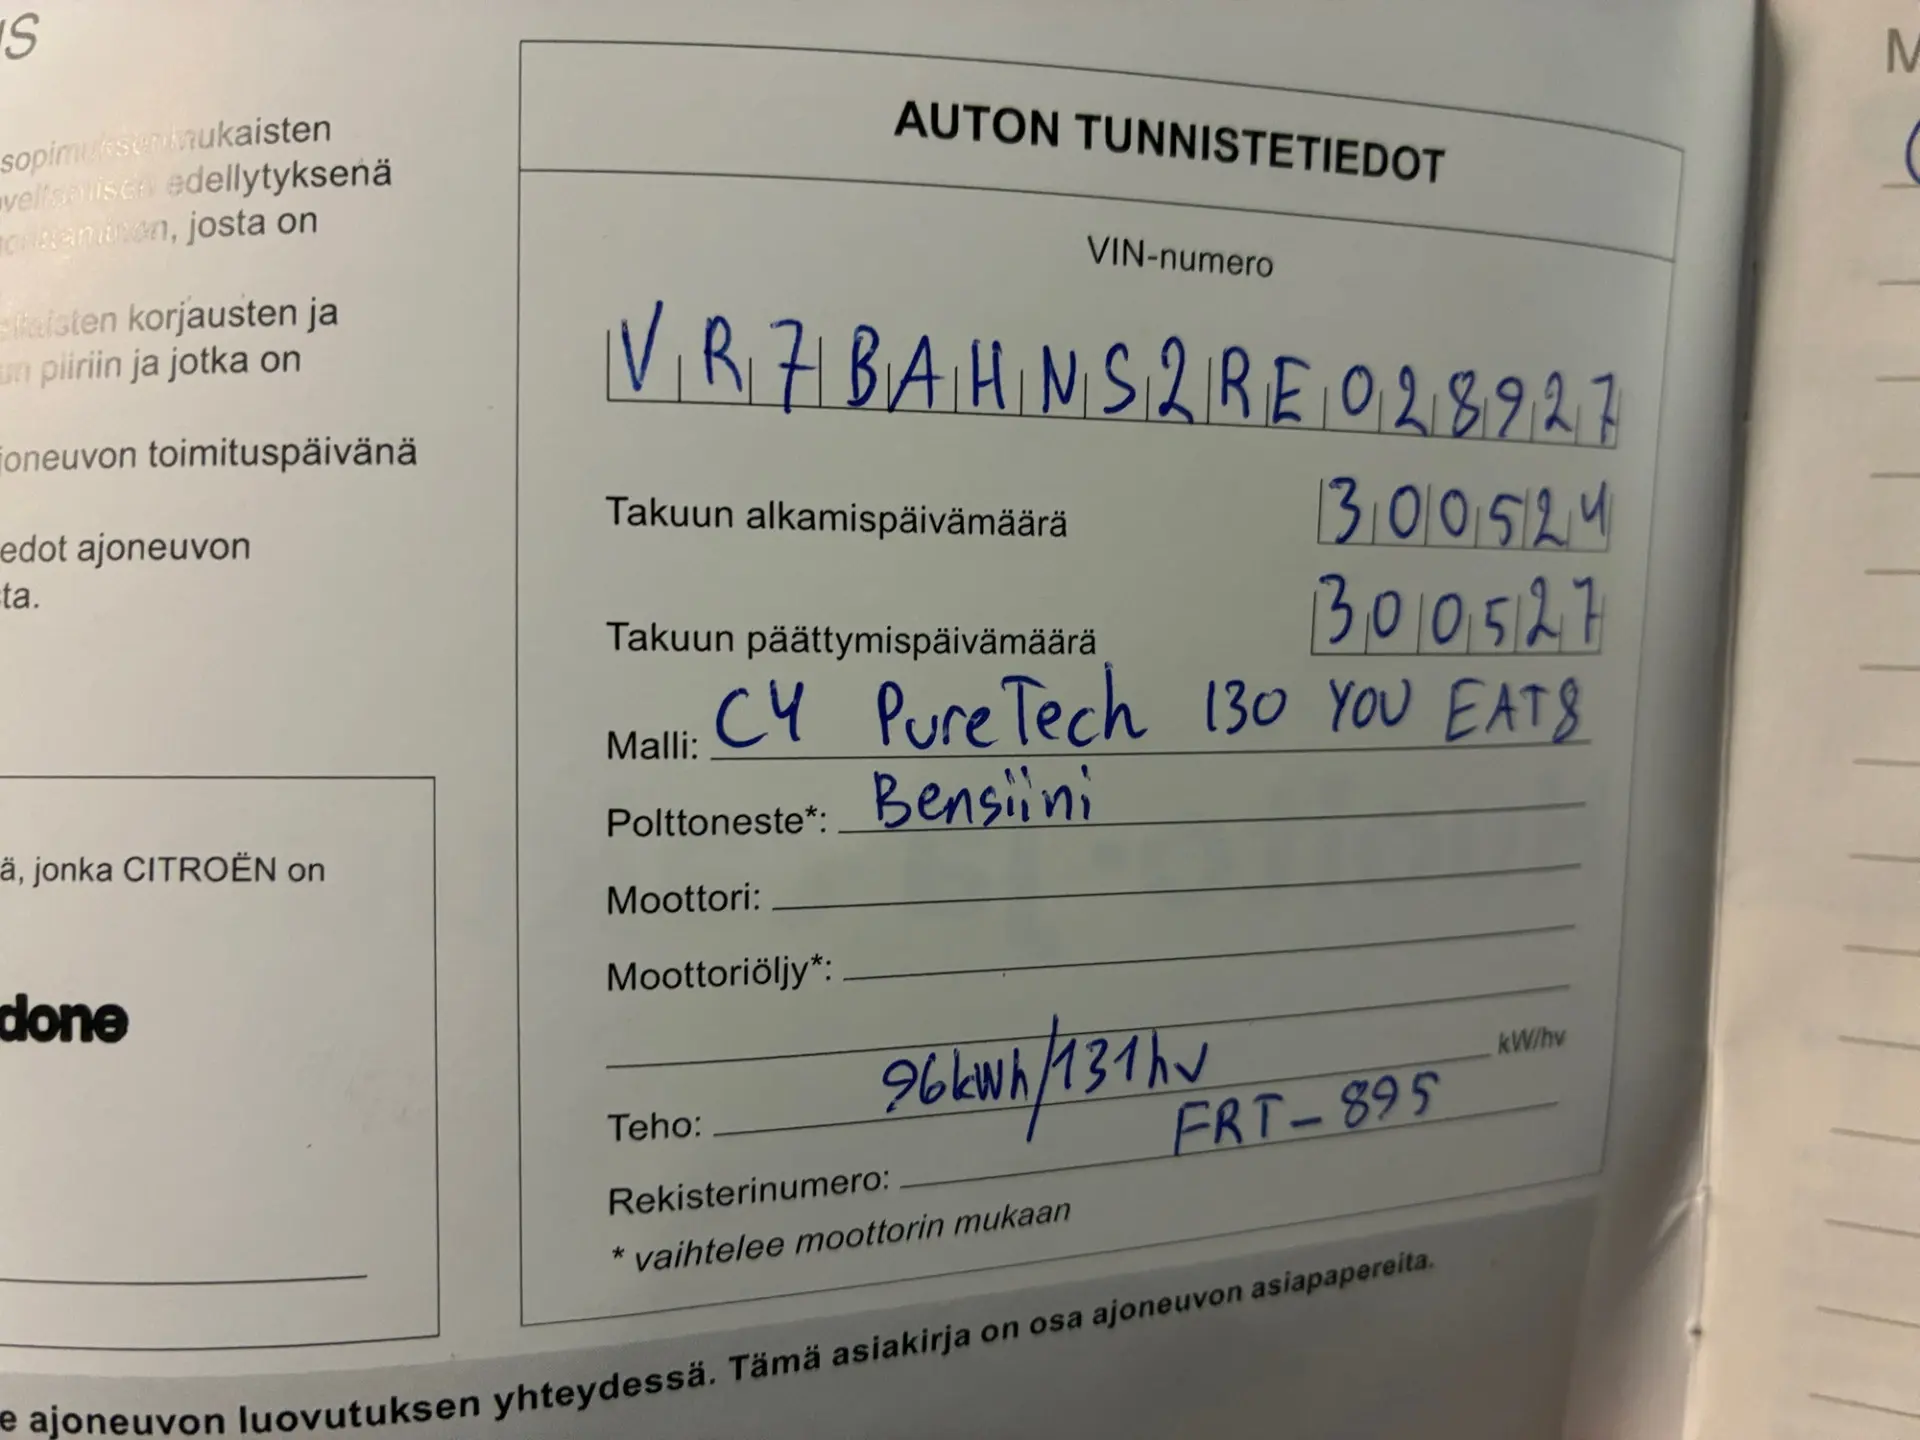 sopimuksen mukaisten
edellytyksenä
josta on
korjausten ja
piiriin ja jotka on
toimituspäivänä
ajoneuvon
jonka CITROËN on
done
AUTON TUNNISTETIEDOT
VIN-numero
VR7BAHNS2RE028927
Takuun alkamispäivämäärä 300524
Takuun päättymispäivämäärä 300527
Malli: C4 PureTech 130 YOU EAT8
Polttoneste*: Bensiini
Moottori:
Moottoriöljy*:
Teho: 96kWh/131hv kW/hv
Rekisterinumero: FRT-895
* vaihtelee moottorin mukaan
ajoneuvon luovutuksen yhteydessä. Tämä asiakirja on osa ajoneuvon asiapapereita.